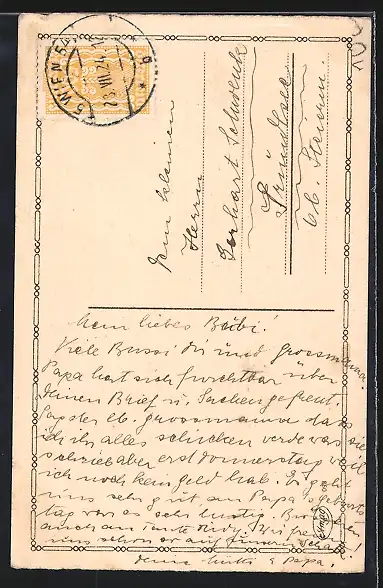 5 WIEN 5
25.VII.24
Dem kleinen
Herrn
Gerhart Schwenk
Grundlsee
Ob. Steierm.
Mein liebes Bubi!
Viele Bussi dir und grossmama!
Papa hat sich furchtbar über
deinen Brief u. Sachen gefreut.
Sag der lb. grossmama dass sie
ich ihr alles schicken werde was
schrieb aber erst donnerstag weil
ich noch kein geld hab. Es geht
uns sehr gut am Papas geburts
tag war es sehr lustig.
auch an tante
uns schon
deine Mutti & Papa.